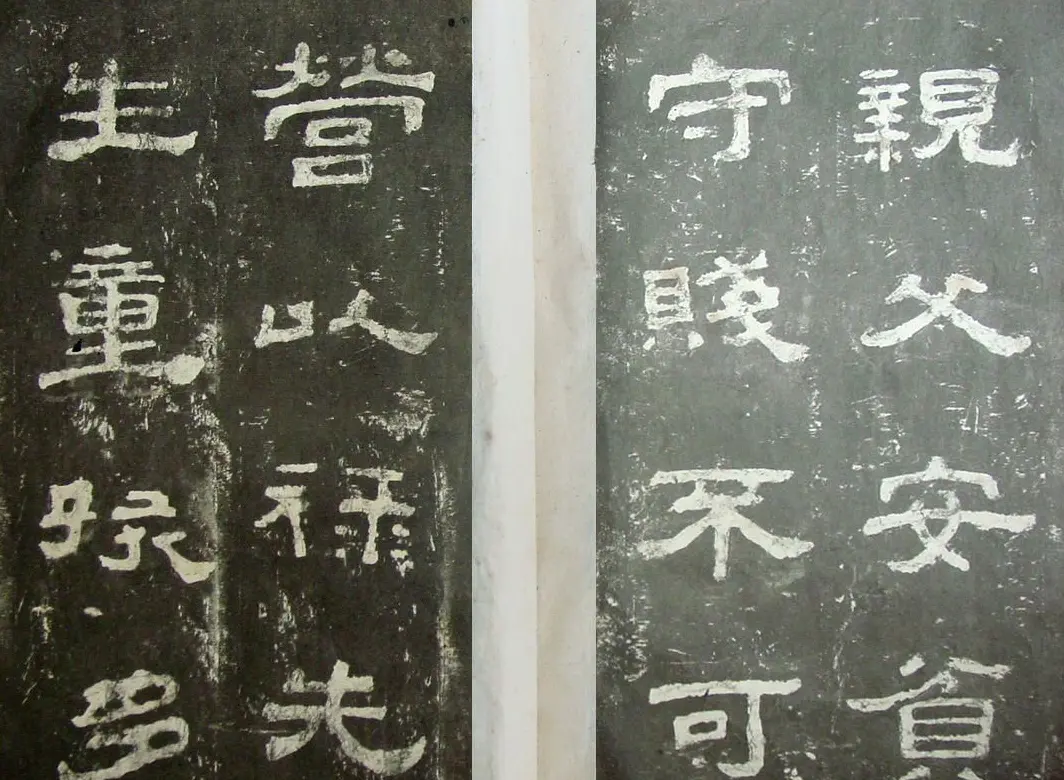 親父安貧
守賤不可
營以祿先
生童孩多